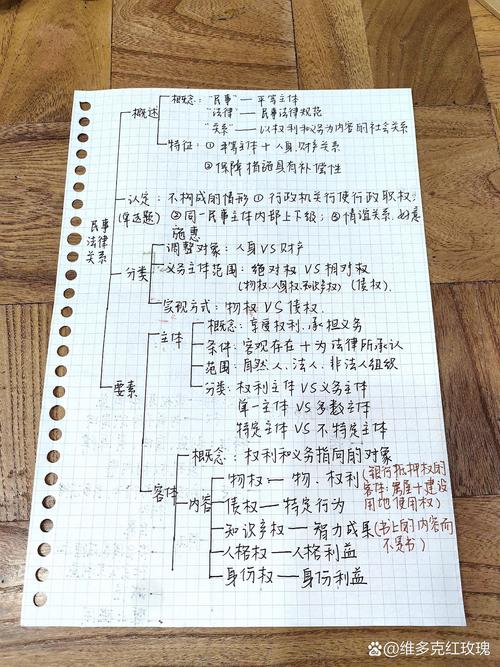 概念："民事"——平等主体
概述 "法律"——民事法律规范
"关系"——以权利和义务为内容的社会关系
特征：①平等主体+人身、财产关系
②保障措施具有补偿性
认定：不构成的情形 ①行政机关行使行政职权；
(单选题) ②同一民事主体内部上下级；④情谊关系，如意
施惠
民事法律关系
调整对象：人身VS财产
分类 义务主体范围：绝对权 VS 相对权
(物权、人身权、知识产权)(债权)
实现方式：物权 VS 债权.
主体 概念：享受权利、承担义务
条件：客观存在+为法律所承认
范围：自然人、法人、非法人组织
要素 分类：权利主体VS义务主体
单一主体 VS 多数主体
特定主体 VS 不特定主体
概念：权利和义务指向的对象
客体 内容 物权——物、权利(银行抵押权的客体：房屋+建设用地使用权)
债权——特定行为
知识产权——智力成果(书上的内容而不是书)
人格权——人格利益
身份权——身份利益
百家号/维多克红玫瑰